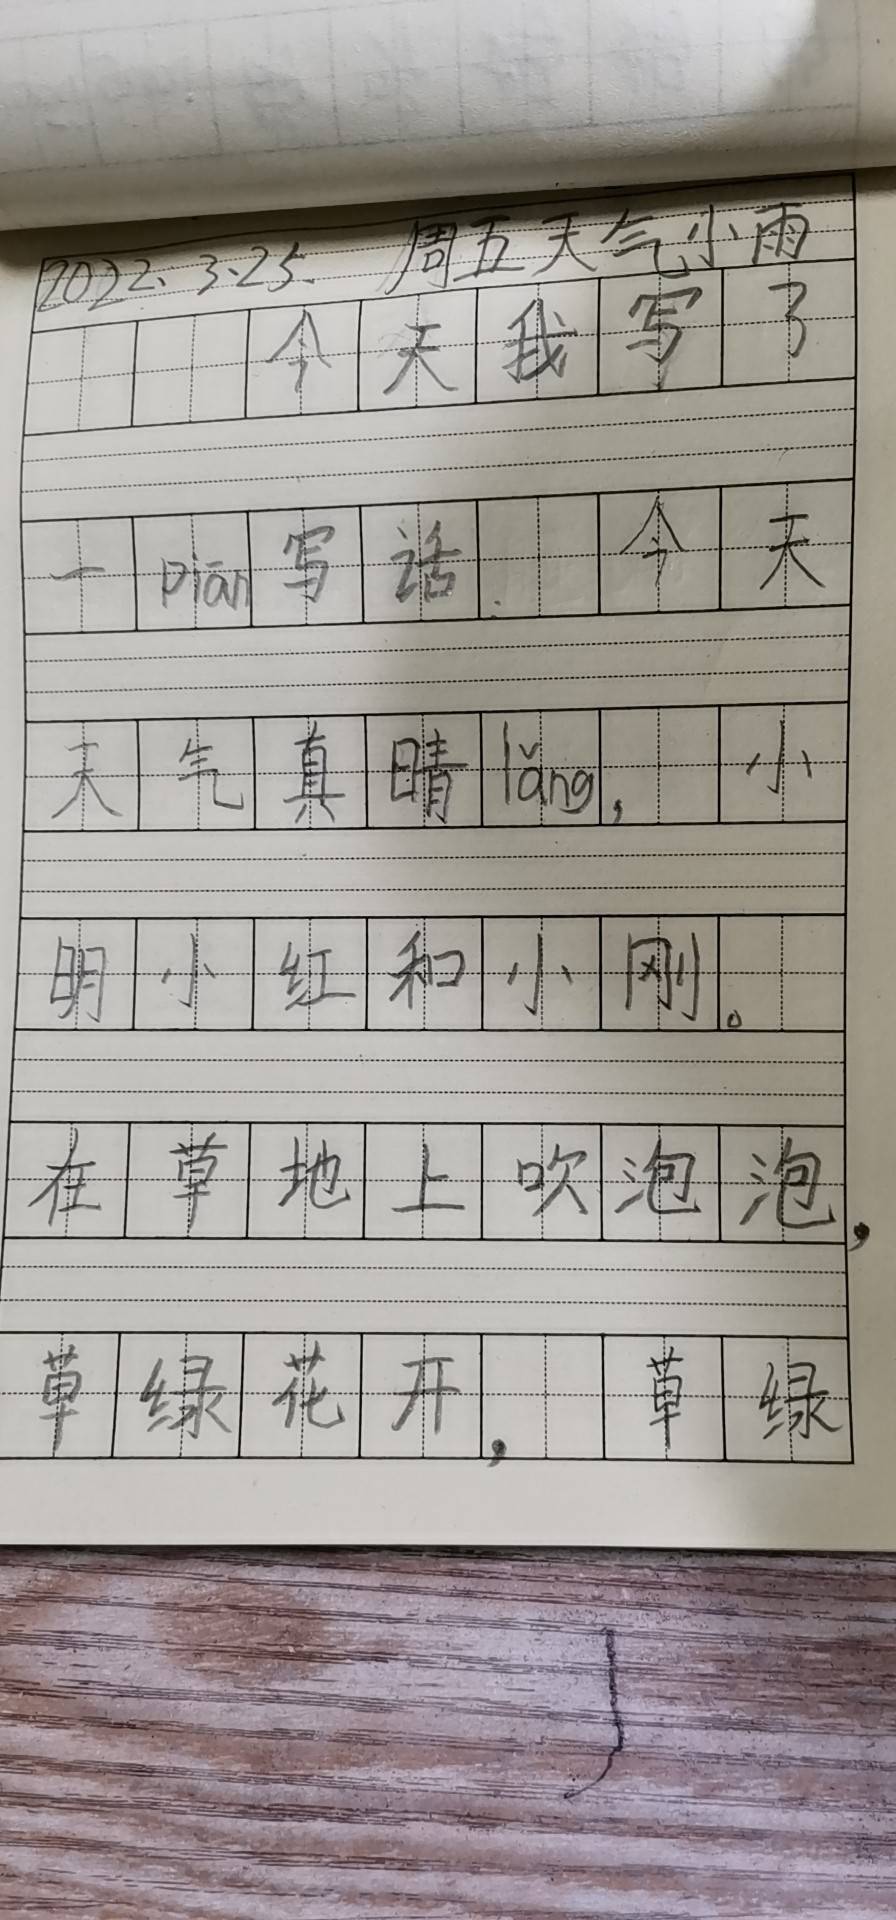 2022.3.25. 周五天气小雨
今天我写了
一piān写话.今天
天气真晴lǎng,小
明小红和小刚。
在草地上吹泡泡,
草绿花开,草绿